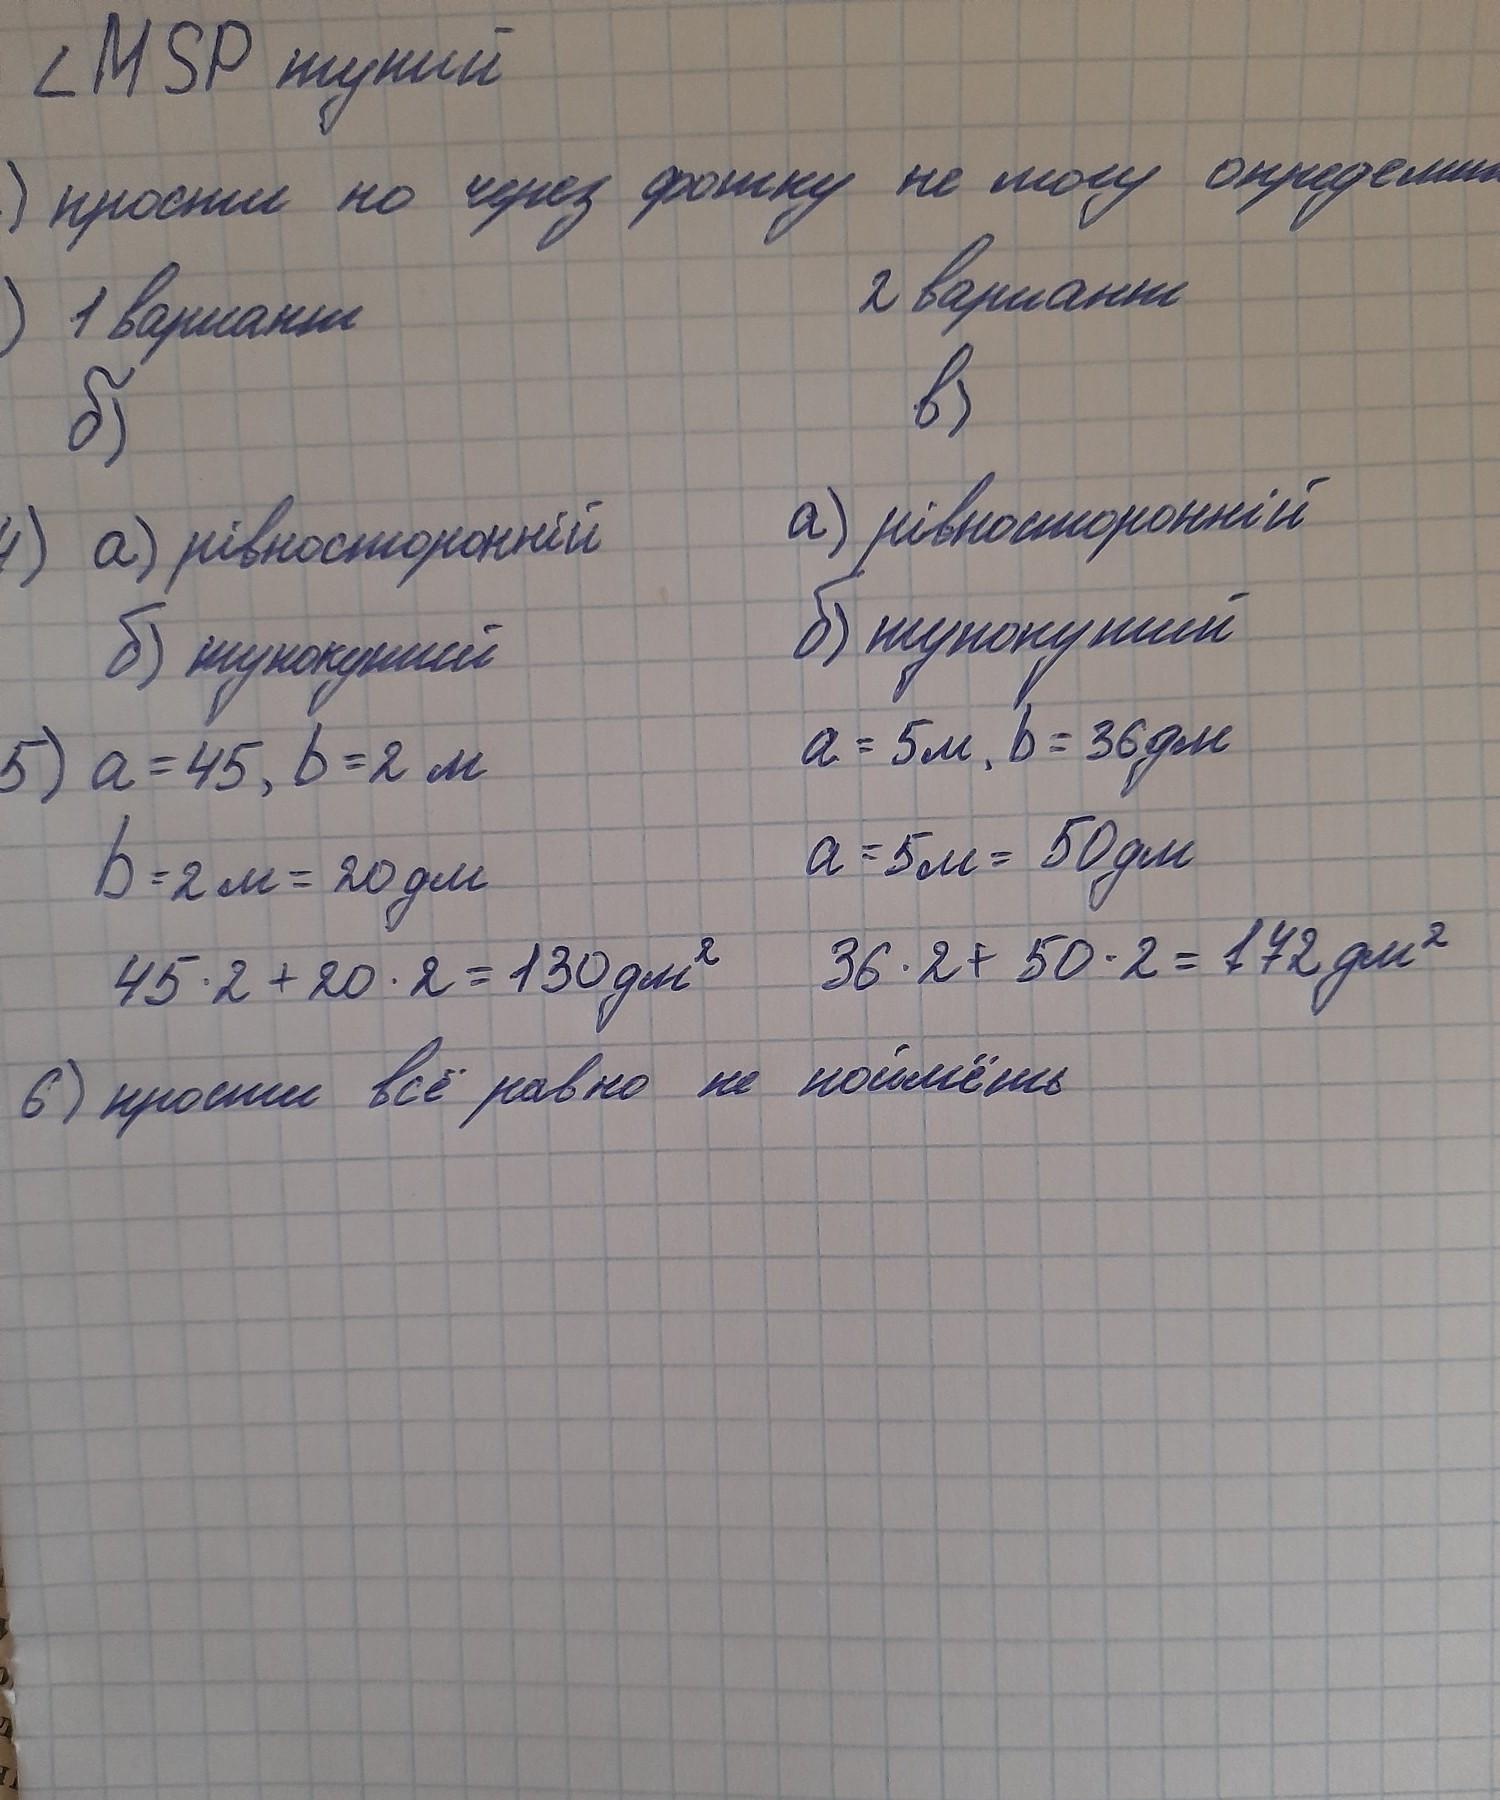 ∠MSP тупий
) прости но через фотку не могу определить
) 1 вариант 2 вариант
б) в)
4) а) рівносторонній а) рівносторонній
б) тупокутний б) тупокутний
5) a = 45, b = 2 м a = 5м, b = 36дм
b = 2 м = 20дм a = 5м = 50дм
45 · 2 + 20 · 2 = 130дм² 36 · 2 + 50 · 2 = 172дм²
6) прости всё равно не поймёшь